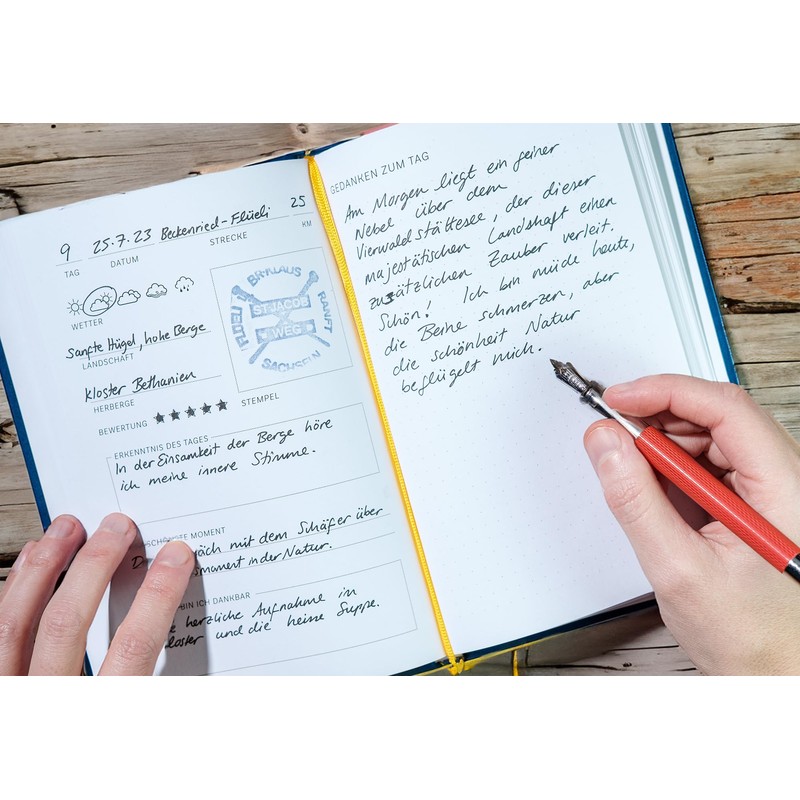 9 25.7.23 Beckenried-Flüeli 25
TAG DATUM STRECKE KM
WETTER
Sanfte Hügel, hohe Berge
LANDSCHAFT
Kloster Bethanien
HERBERGE
BEWERTUNG STEMPEL
BR. KLAUS
FLÜELI RANFT
ST JACOB
WEG
SACHSELN
ERKENNTNIS DES TAGES
In der Einsamkeit der Berge höre
ich meine innere Stimme.
SCHÖNSTE MOMENT
mit dem Schäfer über
moment in der Natur.
BIN ICH DANKBAR
herzliche Aufnahme im
und die heisse Suppe.
GEDANKEN ZUM TAG
Am Morgen liegt ein feiner
Nebel über dem
Vierwaldstättesee, der dieser
majestätischen Landschaft einen
zusätzlichen Zauber verleit.
Schön! Ich bin müde heute,
die Beine schmerzen, aber
die schönheit Natur
beflügelt mich.